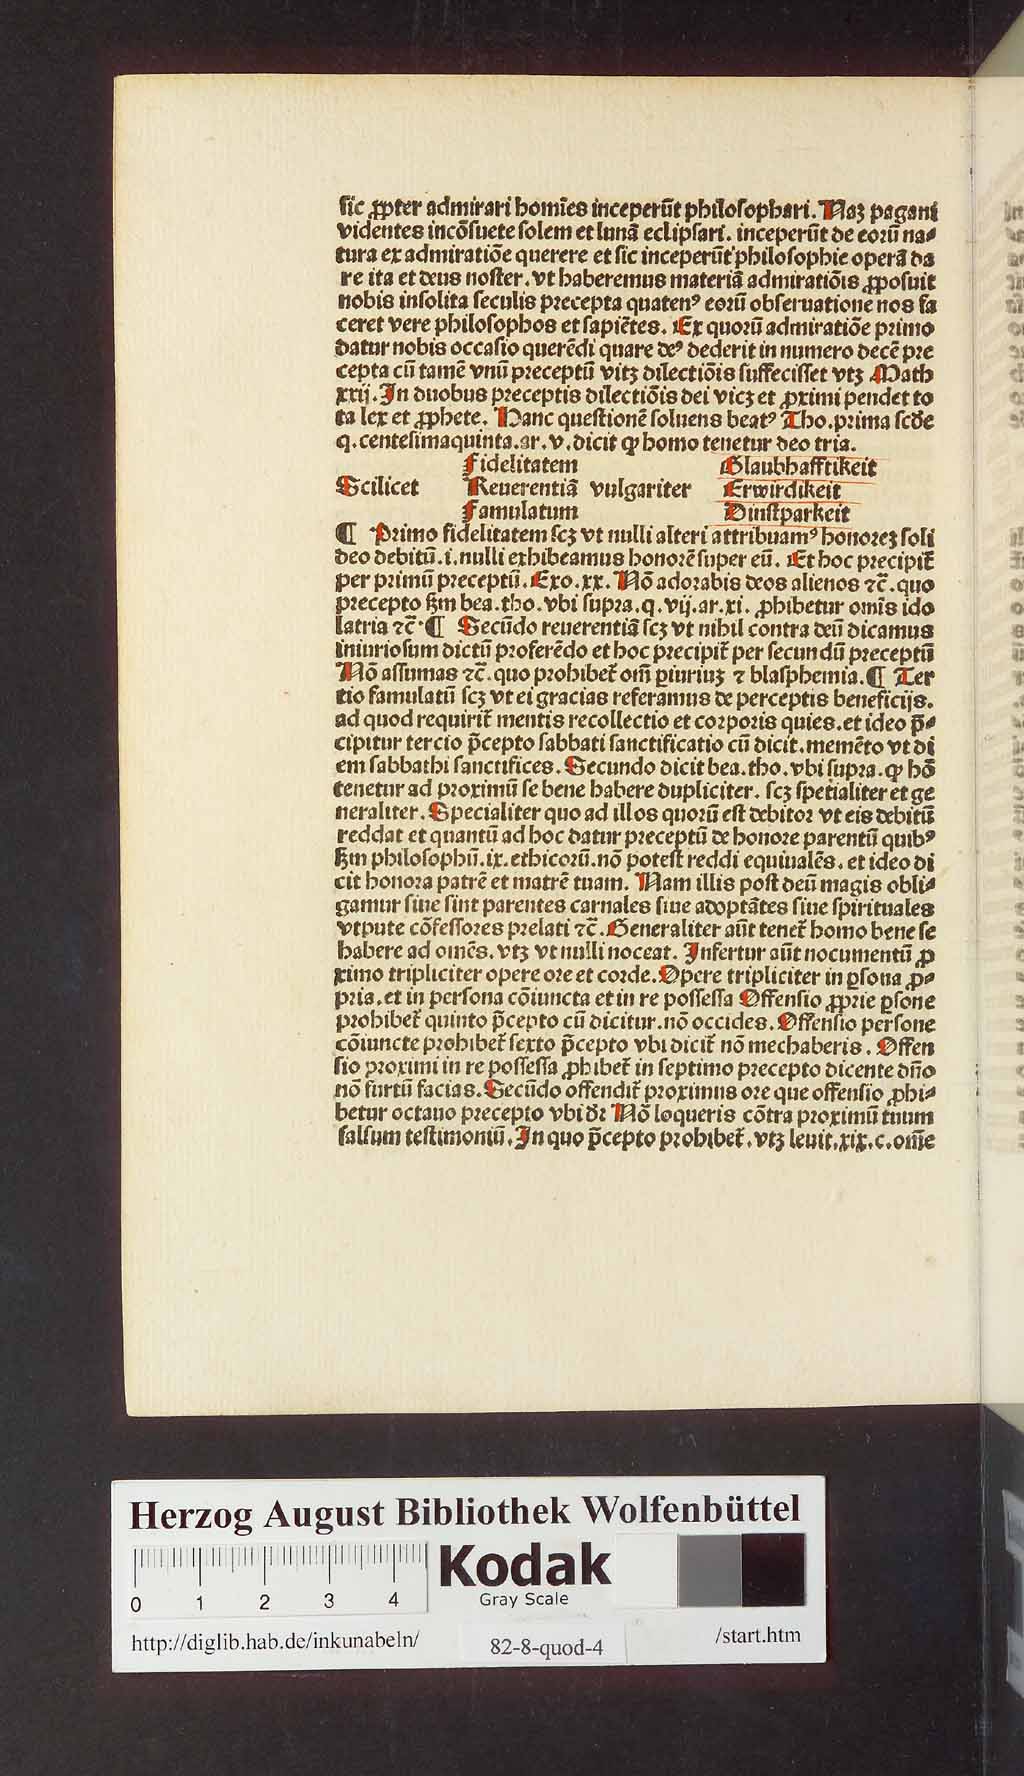 sic ꝓpter admirari homīes inceperūt philosophari. Naꝫ pagani
videntes incōsuete solem et lunā eclipsari. inceperūt de eorū na⸗
tura ex admiratiōe querere et sic inceperūt philosophie operā da
re ita et deus noster. vt haberemus materiā admiratiōis ꝓposuit
nobis insolita seculis precepta quatenꝰ eorū obseruatione nos fa
ceret vere philosophos et sapiētes. Ex quorū admiratiōe primo
datur nobis occasio querēdi quare deꝰ dederit in numero decē pre
cepta cū tamē vnū preceptū vitꝫ dilectiōis suffecisset vtꝫ Math
xxij. In duobus preceptis dilectiōis dei vicꝫ et ꝓximi pendet to
ta lex et ꝓphete. Hanc questionē soluens beatꝰ Tho. prima scd̄e
q. centesimaquinta. ar. v. dicit ꝙ homo tenetur deo tria.
Fidelitatem Glaubhafftikeit
Scilicet Reuerentiā vulgariter Erwirdikeit
Famulatum Dinstparkeit
¶ Primo fidelitatem scꝫ vt nulli alteri attribuamꝰ honoreꝫ soli
deo debitū. i. nulli exhibeamus honorē super eū. Et hoc precipit̄
per primū preceptū. Exo. xx. Nō adorabis deos alienos ⁊c̄. quo
precepto ẜm bea. tho. vbi supra. q. vij. ar. xi. ꝓhibetur omīs ido
latria ⁊c̄ ¶ Secūdo reuerentiā scꝫ vt nihil contra deū dicamus
iniuriosum dictū proferēdo et hoc precipit̄ per secundū preceptū
Nō assumas ⁊c̄. quo prohibet̄ om̄ ꝑiuriuꝫ ⁊ blasphemia. ¶ Ter
tio famulatū scꝫ vt ei gracias referamus de perceptis beneficijs.
ad quod requirit̄ mentis recollectio et corporis quies. et ideo p̄⸗
cipitur tercio p̄cepto sabbati sanctificatio cū dicit. memēto vt di
em sabbathi sanctifices. Secundo dicit bea. tho. vbi supra. ꝙ hō
tenetur ad proximū se bene habere dupliciter. scꝫ spetialiter et ge
neraliter. Specialiter quo ad illos quorū est debitor vt eis debitū
reddat et quantū ad hoc datur preceptū de honore parentū quibꝰ
ẜm philosophū. ix. ethicorū. nō potest reddi equiualēs. et ideo di
cit honora patrē et matrē tuam. Nam illis post deū magis obli⸗
gamur siue sint parentes carnales siue adoptātes siue spirituales
vtpute cōfessores prelati ⁊c̄. Generaliter aūt tenet̄ homo bene se
habere ad omēs. vtꝫ vt nulli noceat. Infertur aūt nocumentū ꝓ
ximo tripliciter opere ore et corde. Opere tripliciter in ꝑsona ꝓ⸗
pria. et in persona cōiuncta et in re possessa Offensio ꝓprie ꝑsone
prohibet̄ quinto p̄cepto cū dicitur. nō occides. Offensio persone
cōiuncte prohibet̄ sexto p̄cepto vbi dicit̄ nō mechaberis. Offen
sio proximi in re possessa ꝓhibet̄ in septimo precepto dicente dn̄o
nō furtū facias. Secūdo offendit̄ proximus ore que offensio ꝓhi⸗
betur octauo precepto vbi dr̄ Nō loqueris cōtra proximū tuum
falsum testimoniū. In quo p̄cepto prohibet̄. vtꝫ leuit. xix. c. om̄e
Herzog August Bibliothek Wolfenbüttel
0 1 2 3 4
Kodak
Gray Scale
http://diglib.hab.de/inkunabeln/ 82-8-quod-4 /start.htm